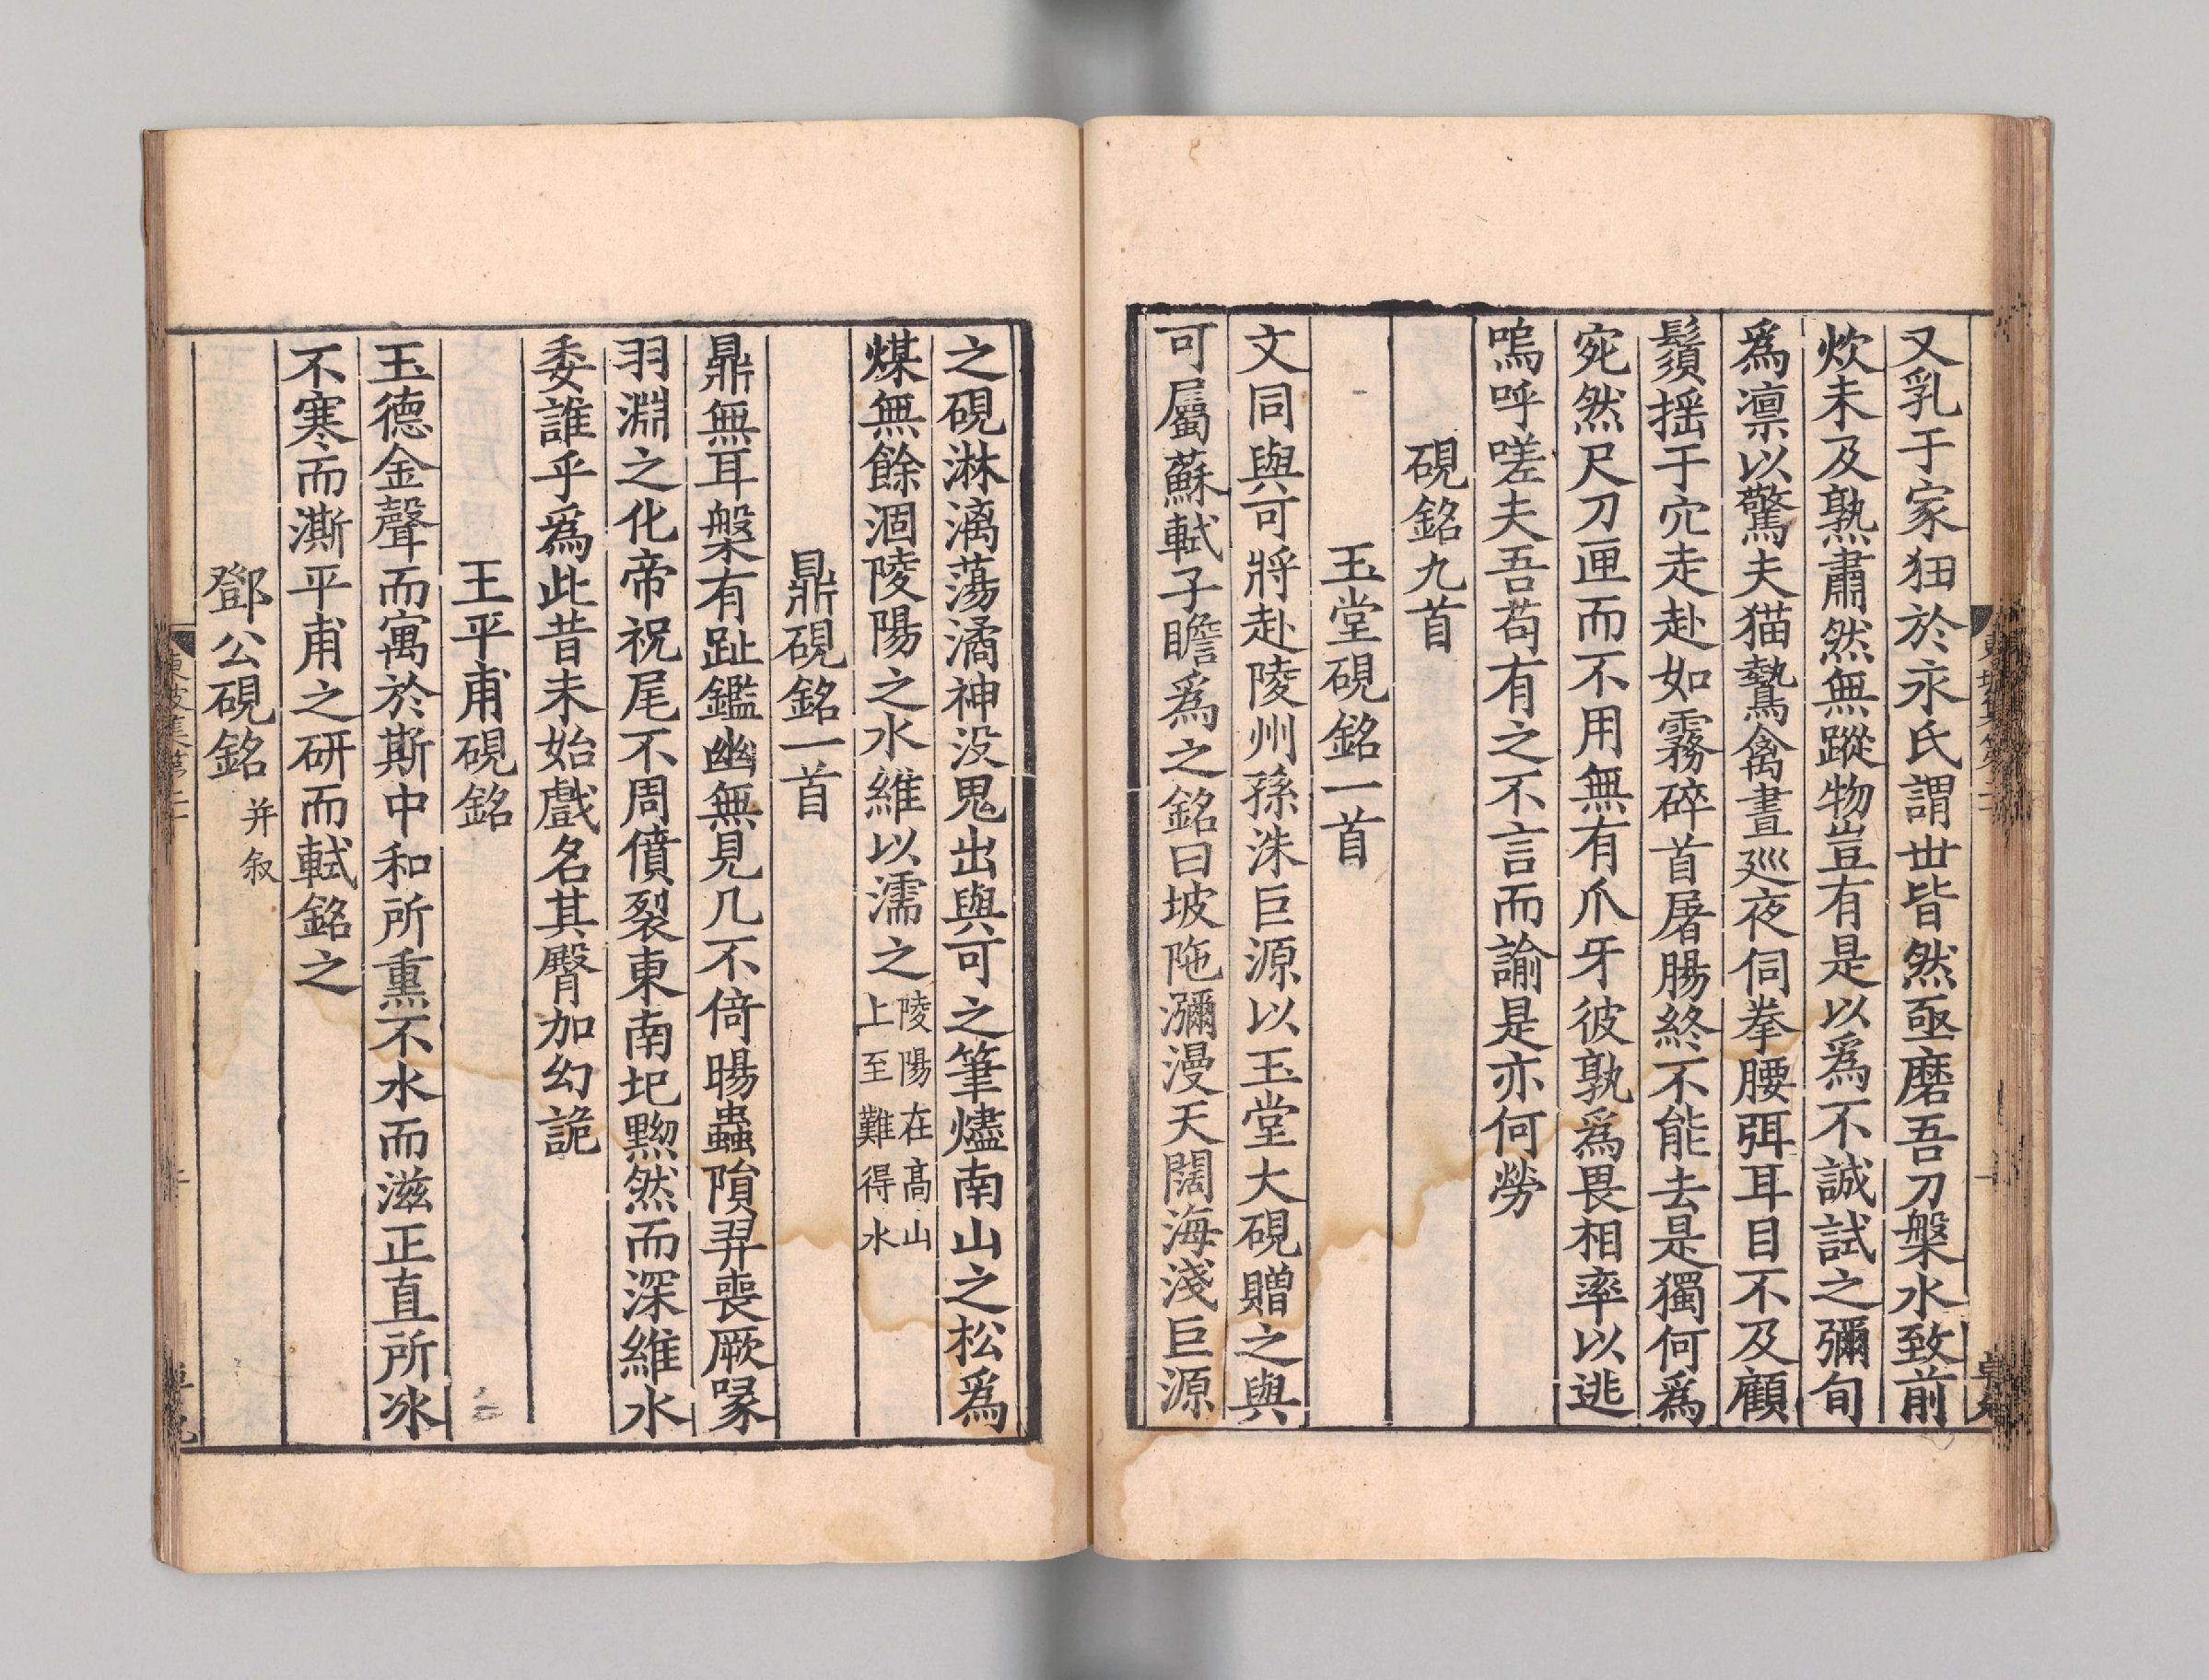 又乳于家狃於永氏謂世皆然亟磨吾刀槃水致前
炊未及熟肅然無蹤物豈有是以為不誠試之彌旬
爲凛以驚夫猫鷙禽晝廵夜伺拳腰弭耳目不及顧
鬚揺于穴走赴如霧碎首屠腸終不能去是獨何爲
宛然尺刀匣而不用無有爪牙彼孰爲畏相率以逃
嗚呼嗟夫吾苟有之不言而諭是亦何勞
硯銘九首
玉堂硯銘一首
文同與可將赴陵州孫洙巨源以玉堂大硯贈之與
可屬蘇軾子瞻爲之銘曰坡陁瀰漫天闊海淺巨源
之硯淋漓蕩潏神没鬼出與可之筆燼南山之松爲
煤無餘涸陵陽之水維以濡之陵陽在高山
上至難得水
鼎硯銘一首
鼎無耳槃有趾鑑幽無見几不倚暘蟲隕羿喪厥喙
羽淵之化帝祝尾不周僨裂東南圮黝然而深維水
委誰乎爲此昔未始戲名其臀加幻詭
王平甫硯銘
玉德金聲而寓於斯中和所熏不水而滋正直所冰
不寒而澌平甫之研而軾銘之
鄧公硯銘并叙
東坡集第二十